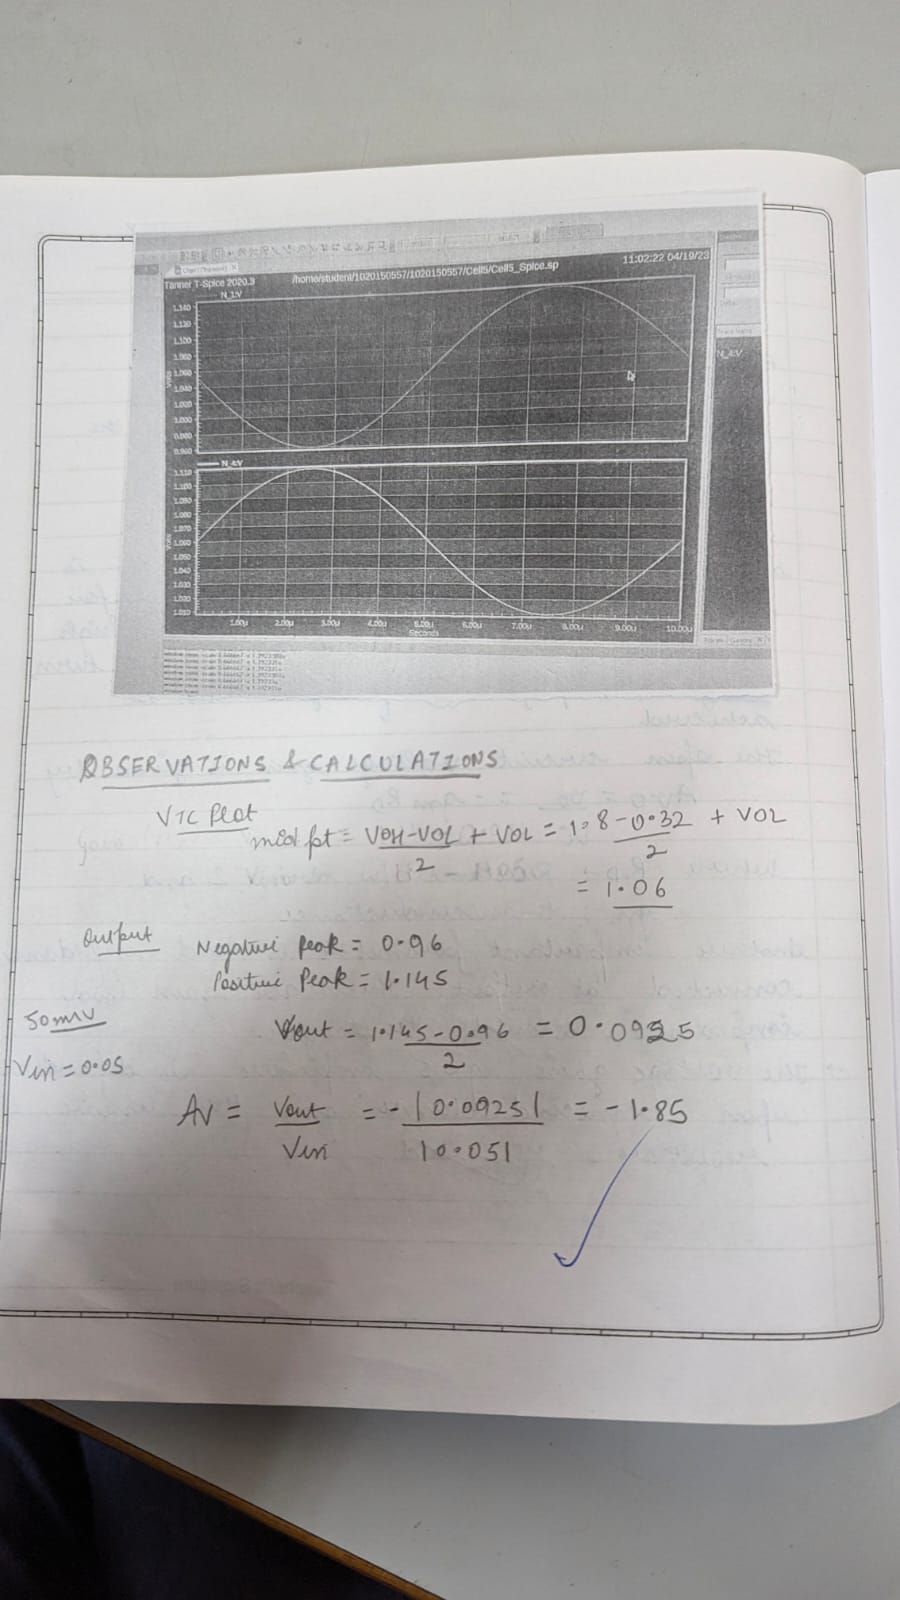 Tanner T-Spice 2020.3
/home/student/1020150557/1020150557/Cell5/Cell5_Spice.sp
11:02:22 04/19/23
N_1:V
1.140
1.120
1.100
1.080
1.060
1.040
1.020
1.000
0.980
0.960
Volts
N_4:V
N_4:V
1.110
1.100
1.090
1.080
1.070
1.060
1.050
1.040
1.030
1.020
1.010
Volts
1.00u 2.00u 3.00u 4.00u 5.00u 6.00u 7.00u 8.00u 9.00u 10.00u
Seconds
OBSERVATIONS & CALCULATIONS
VTC Plot
mid pt = VOH-VOL / 2 + VOL = 1.8-0.32 / 2 + VOL
= 1.06
Output
Negative Peak = 0.96
Positive Peak = 1.145
50mV
Vout = 1.145-0.96 / 2 = 0.0925
Vin = 0.05
Av = Vout / Vin = - |0.0925| / |0.05| = -1.85